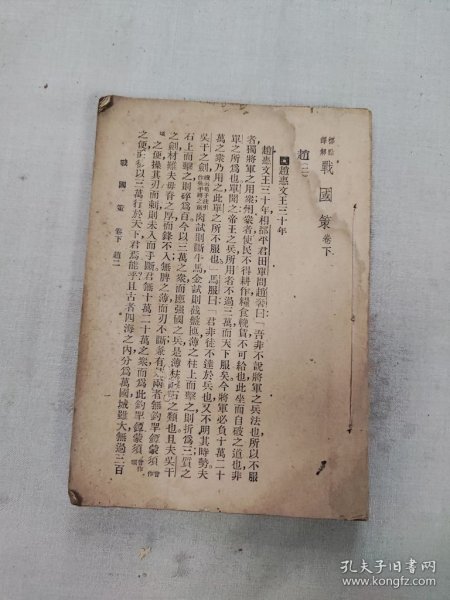 標點
譯解
戰國策 卷下
趙(二)
趙惠文王三十年
趙惠文王三十年相都平君田單問趙奢曰「吾非不說將軍之兵法也所以不服
者獨將軍之用衆用衆者使民不得耕作糧食輓賃不可給也此坐而自破之道也非
單之所爲也單聞之帝王之兵所用者不過三萬而天下服矣今將軍必負十萬二十
萬之衆乃用之此單之所不服也」馬服曰「君非徒不達於兵也又不明其時勢夫
吳干之劍肉試則斷牛馬金試則截盤匜薄之柱上而擊之則折爲三質之
石上而擊之則碎爲百今以三萬之衆而應強國之兵是薄柱擊石之類也且夫吳干
之劍材難夫毋脊之厚而鋒不入無脾之薄而刃不斷兼有是兩者無鈎䍁鐔蒙須
之便操其刃而刺則未入而手斷君無十萬二十萬之衆而爲此鈎䍁鐔蒙須
之便而徒以三萬行於天下君焉能乎且古者四海之內分爲萬國城雖大無過三百
戰國策 卷下 趙二
孔夫子旧书网
www.kongfz.com